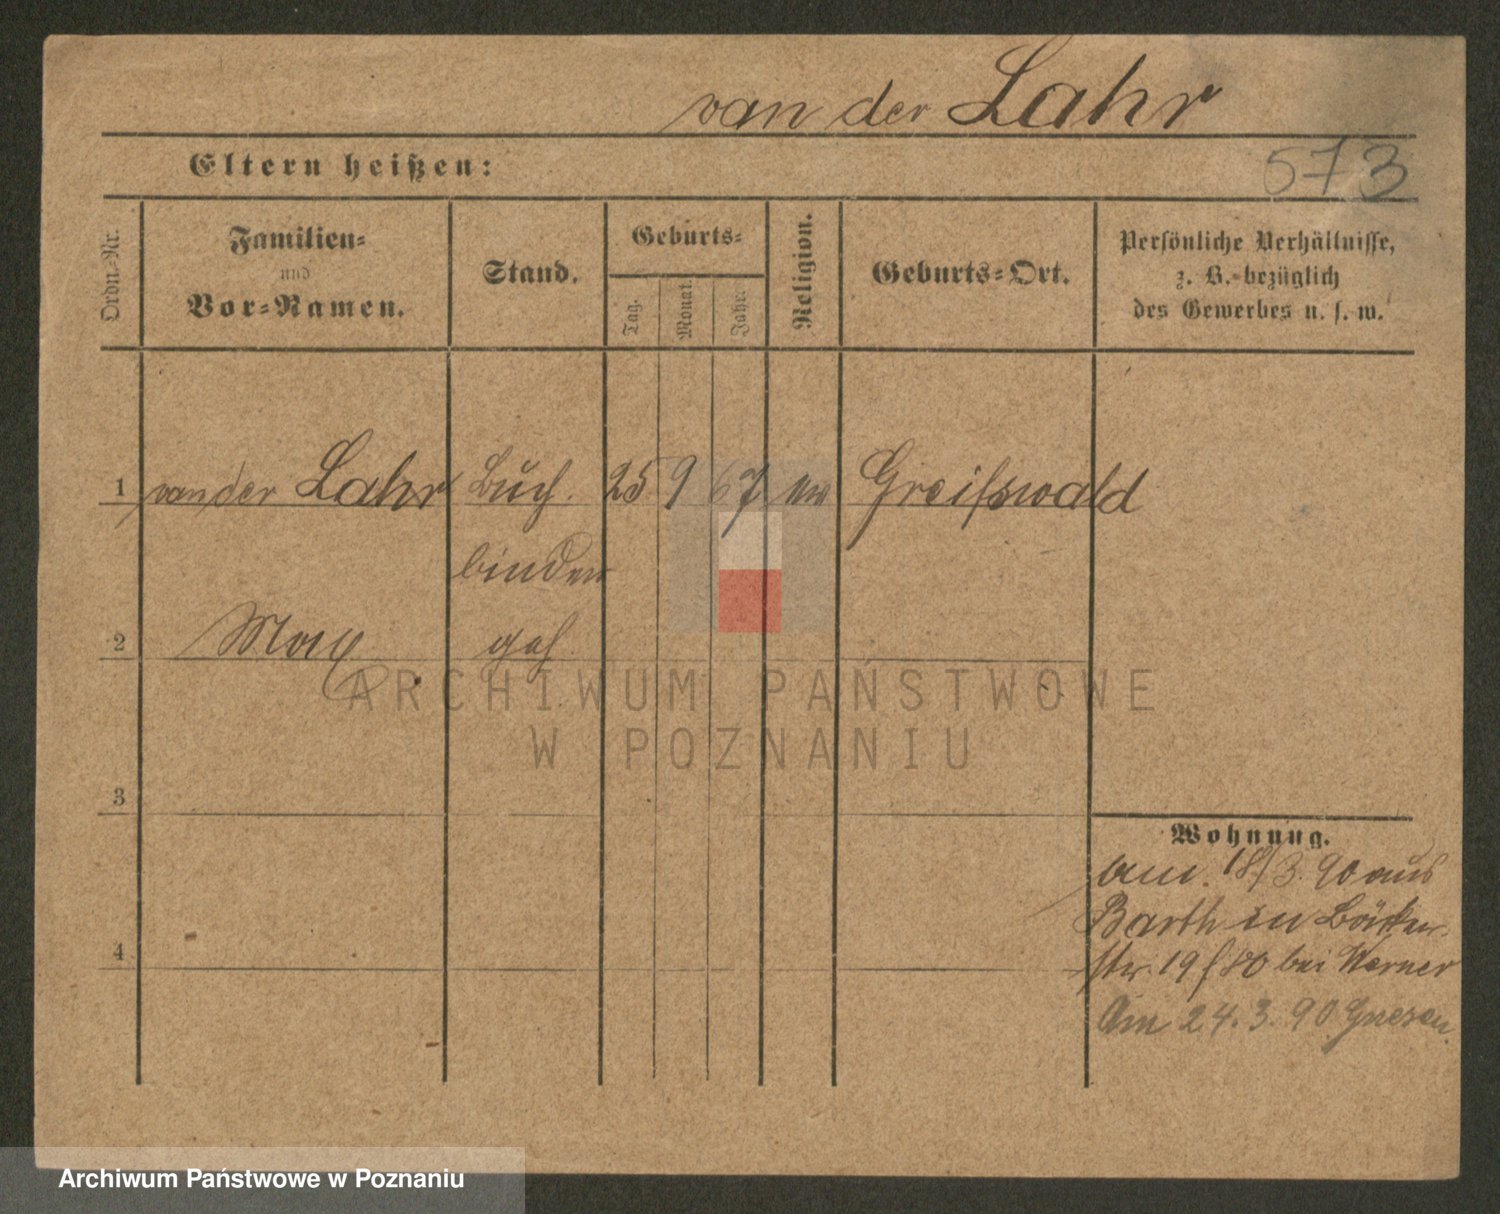 van der Lahr
Eltern heißen:
573
Ordn.-Nr.
Familien-
und
Vor-Namen.
Stand.
Geburts-
Tag.
Monat.
Jahr.
Religion.
Geburts-Ort.
Persönliche Verhältnisse,
z. B. bezüglich
des Gewerbes u. s. w.
1 van der Lahr Buch 25 9 67 Greifswald
binder
2 Max geh
ARCHIWUM PAŃSTWOWE
W POZNANIU
3
Wohnung.
am 18/3. 90 aus
Barth in Bäcker
str. 19 bei Werner
4
Am 24.3.90 Gnesen
Archiwum Państwowe w Poznaniu